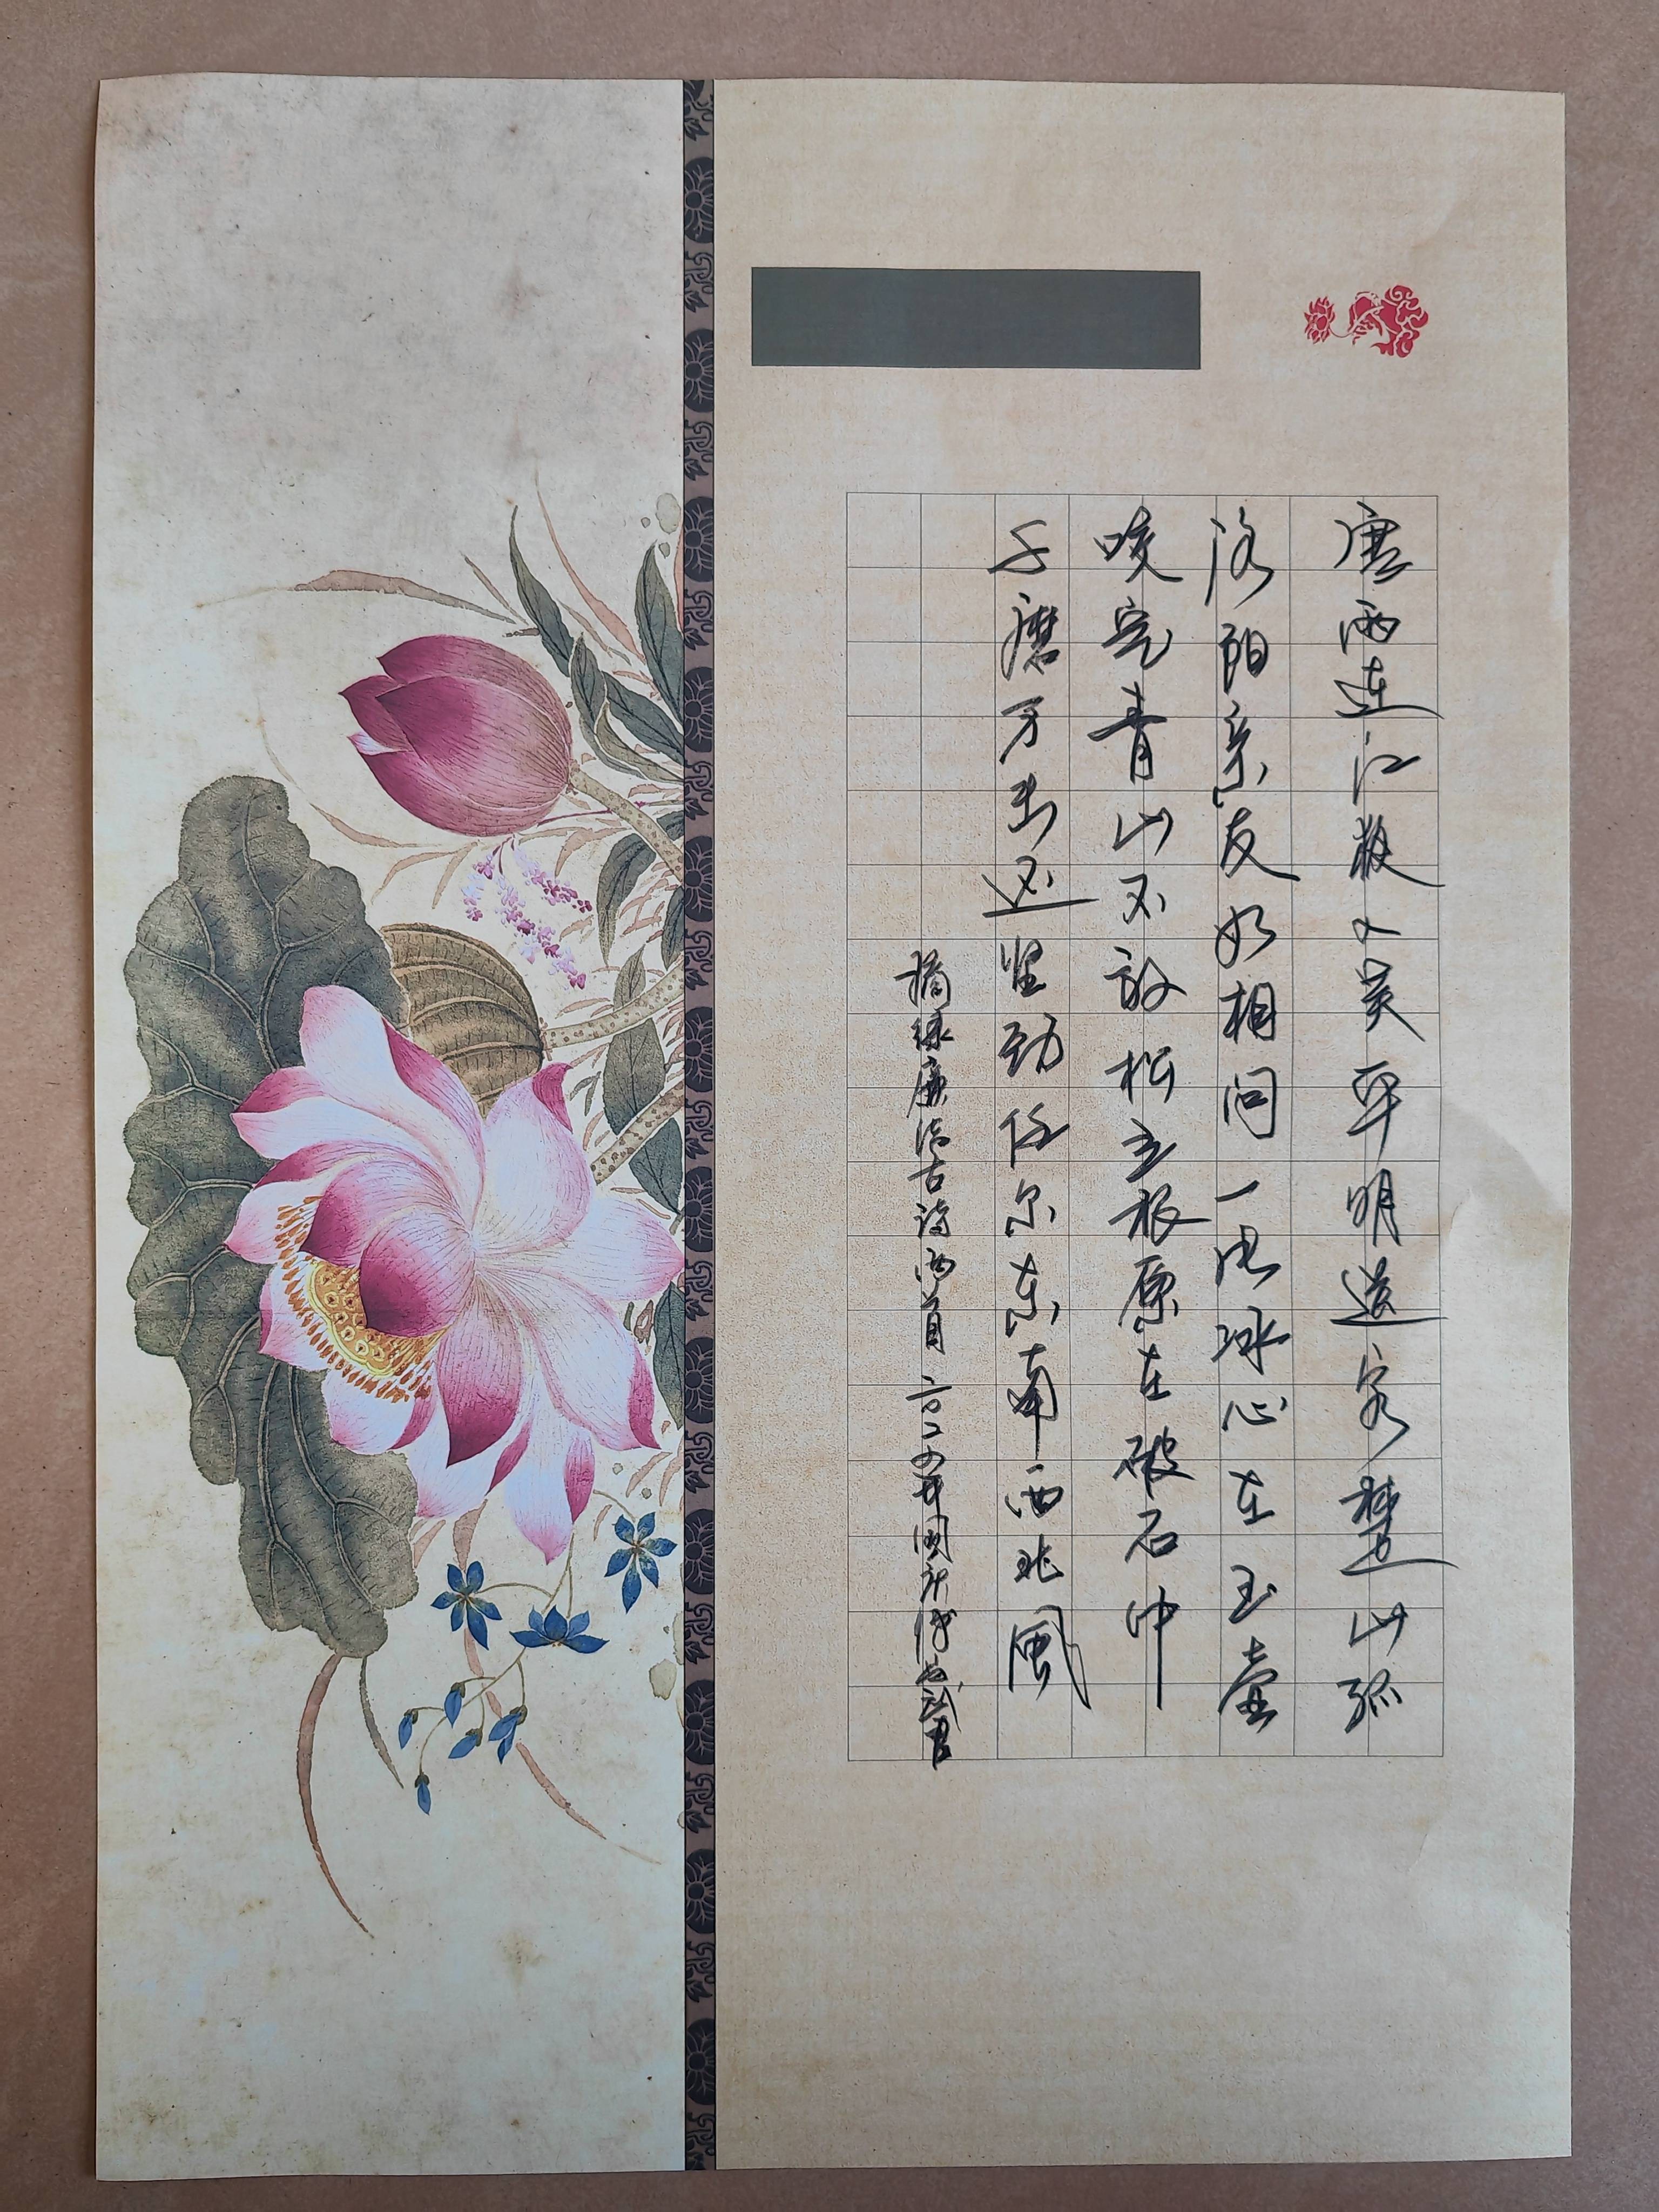 寒雨连江夜入吴平明送客楚山孤
洛阳亲友如相问一片冰心在玉壶
咬定青山不放松立根原在破石中
千磨万击还坚劲任尔东南西北风
摘录廉洁古诗两首二〇二四年国庆书